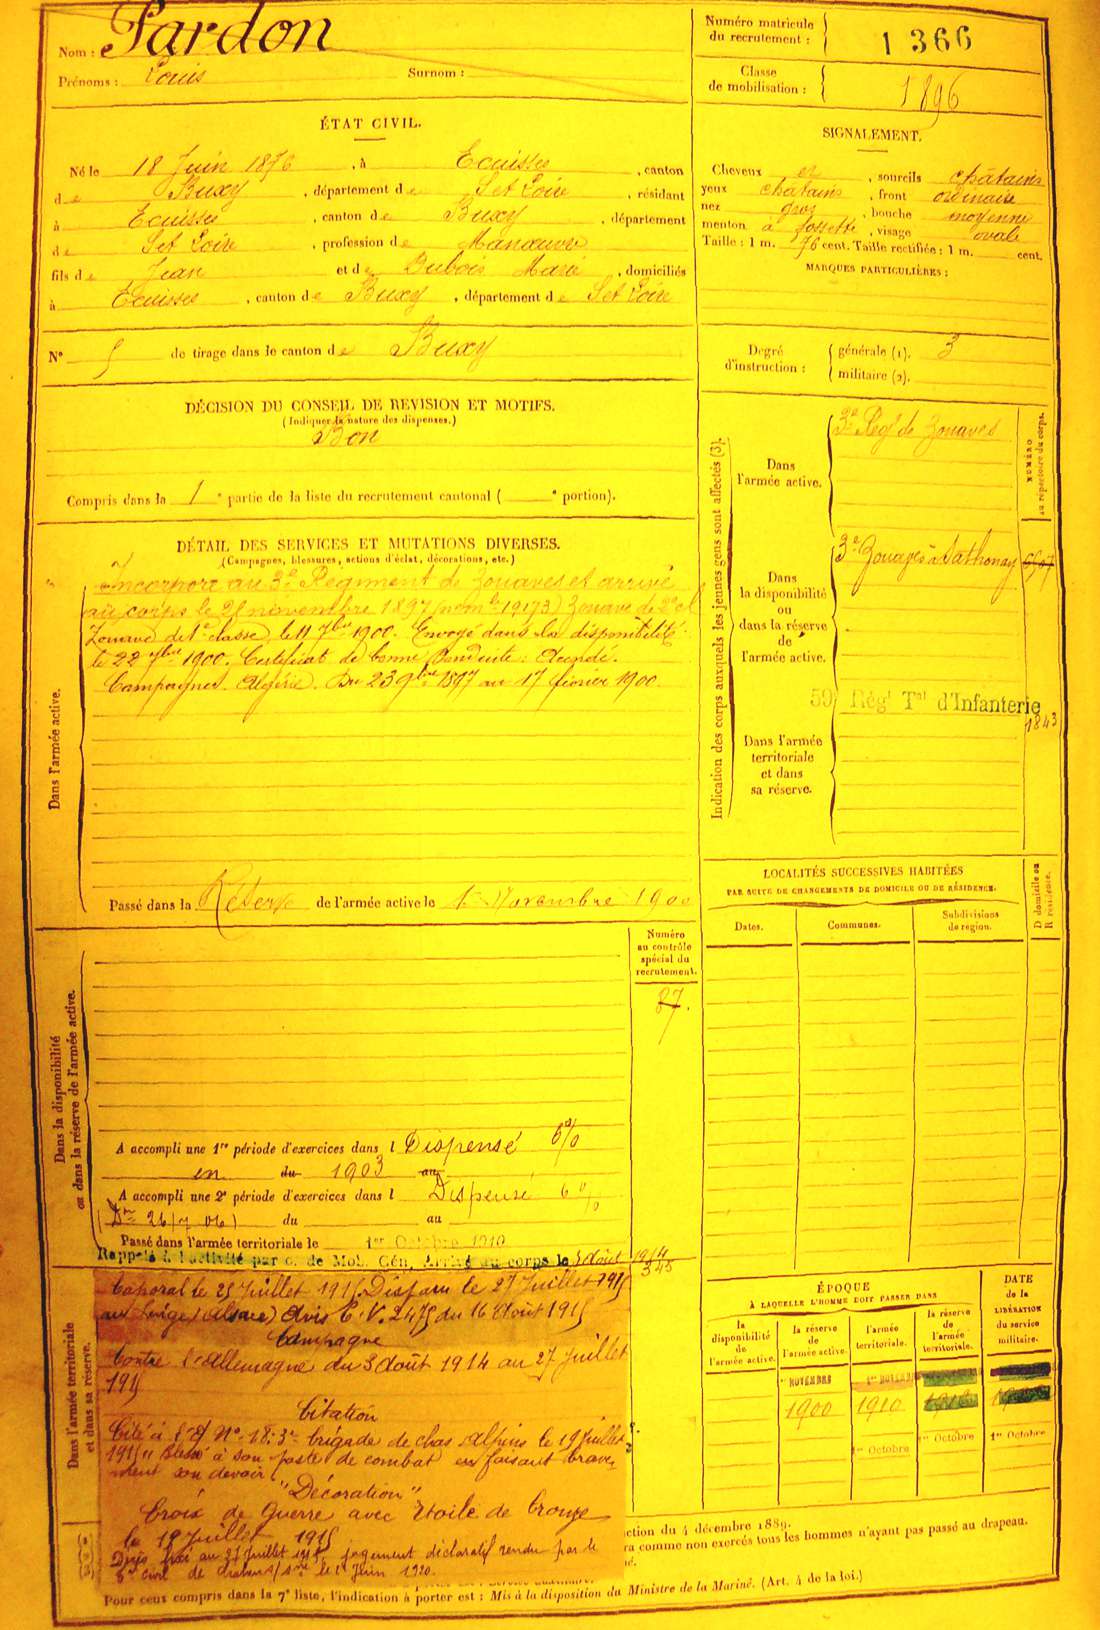 Nom : Pardon
Prénoms : Louis Surnom :
Numéro matricule
du recrutement : 1366
Classe
de mobilisation : 1896
ÉTAT CIVIL.
Né le 18 Juin 1876, à Ecuisses, canton
de Buxy, département de S et Loire, résidant
à Ecuisses, canton de Buxy, département
de S et Loire, profession de Manœuvre
fils de Jean et de Dubois Marie, domiciliés
à Ecuisses, canton de Buxy, département de S et Loire
N° 5 de tirage dans le canton de Buxy
SIGNALEMENT.
Cheveux et, sourcils châtains
yeux châtains, front ordinaire
nez gros, bouche moyenne
menton à fossette, visage ovale
Taille : 1 m. 76 cent. Taille rectifiée : 1 m. cent.
MARQUES PARTICULIÈRES :
Degré
d'instruction :
générale (1). 3
militaire (2).
DÉCISION DU CONSEIL DE REVISION ET MOTIFS.
(Indiquer la nature des dispenses.)
Bon
Compris dans la 1e partie de la liste du recrutement cantonal ( e portion).
DÉTAIL DES SERVICES ET MUTATIONS DIVERSES.
(Campagnes, blessures, actions d'éclat, décorations, etc.)
Dans l'armée active.
Incorporé au 3e Régiment de Zouaves et arrivé
au corps le 21 novembre 1897 Zouave de 2e cl
Zouave de 1e classe, le 11 7bre 1900. Envoyé dans la disponibilité
le 22 7bre 1900. Certificat de bonne Conduite : Accordé.
Campagnes Algérie. Du 23 9bre 1897 au 17 février 1900.
Passé dans la Réserve de l'armée active le 1er Novembre 1900
Indication des corps auxquels les jeunes gens sont affectés (3).
Dans
l'armée active.
3e Regt de Zouaves
NUMÉRO
au répertoire du corps.
Dans
la disponibilité
ou
dans la réserve
de
l'armée active.
3e Zouaves à Sathonay
59 Régt Tal d'Infanterie
1843
Dans l'armée
territoriale
et dans
sa réserve.
LOCALITÉS SUCCESSIVES HABITÉES
PAR SUITE DE CHANGEMENTS DE DOMICILE OU DE RÉSIDENCE.
Dates. Communes. Subdivisions
de région.
D domicile ou
R résidence.
Numéro
au contrôle
spécial du
recrutement.
87.
Dans la disponibilité
ou dans la réserve de l'armée active.
A accompli une 1re période d'exercices dans l Dispensé 6%
en du 1903 au
A accompli une 2e période d'exercices dans l Dispensé 6%
du au
Passé dans l'armée territoriale le 1er Octobre 1910
Rappelé à l'activité par o. de Mob. Gén. Arrivé au corps le 3 août 1914
345
Dans l'armée territoriale
et dans sa réserve.
Caporal le 25 Juillet 1915. Disparu le 27 Juillet 1915
au Linge (Alsace) Avis 2475 du 16 Août 1915
Campagne
Contre l'Allemagne du 3 Août 1914 au 27 Juillet
1915
Citation
Cité à N° 18. 3e brigade de chas. Alpins le 19 Juillet
1915 " Blessé à son poste de combat en faisant brave-
ment son devoir
"Décoration"
Croix de Guerre avec Etoile de bronze
le 19 Juillet 1915
Décès fixé au 27 Juillet 1915, jugement déclaratif rendu par le
civil de Chalons s/ Sne le Juin 1920.
ÉPOQUE
À LAQUELLE L'HOMME DOIT PASSER DANS
la
disponibilité
de
l'armée active.
la réserve
de
l'armée active.
l'armée
territoriale.
la réserve
de
l'armée
territoriale.
DATE
de la
LIBÉRATION
du service
militaire.
NOVEMBRE 1er NOVEMB
1900 1910
1er Octobre 1er Octobre 1er Octobre
ction du 4 décembre 1889.
ra comme non exercés tous les hommes n'ayant pas passé au drapeau.
Pour ceux compris dans la 7e liste, l'indication à porter est : Mis à la disposition du Ministre de la Marine. (Art. 4 de la loi.)